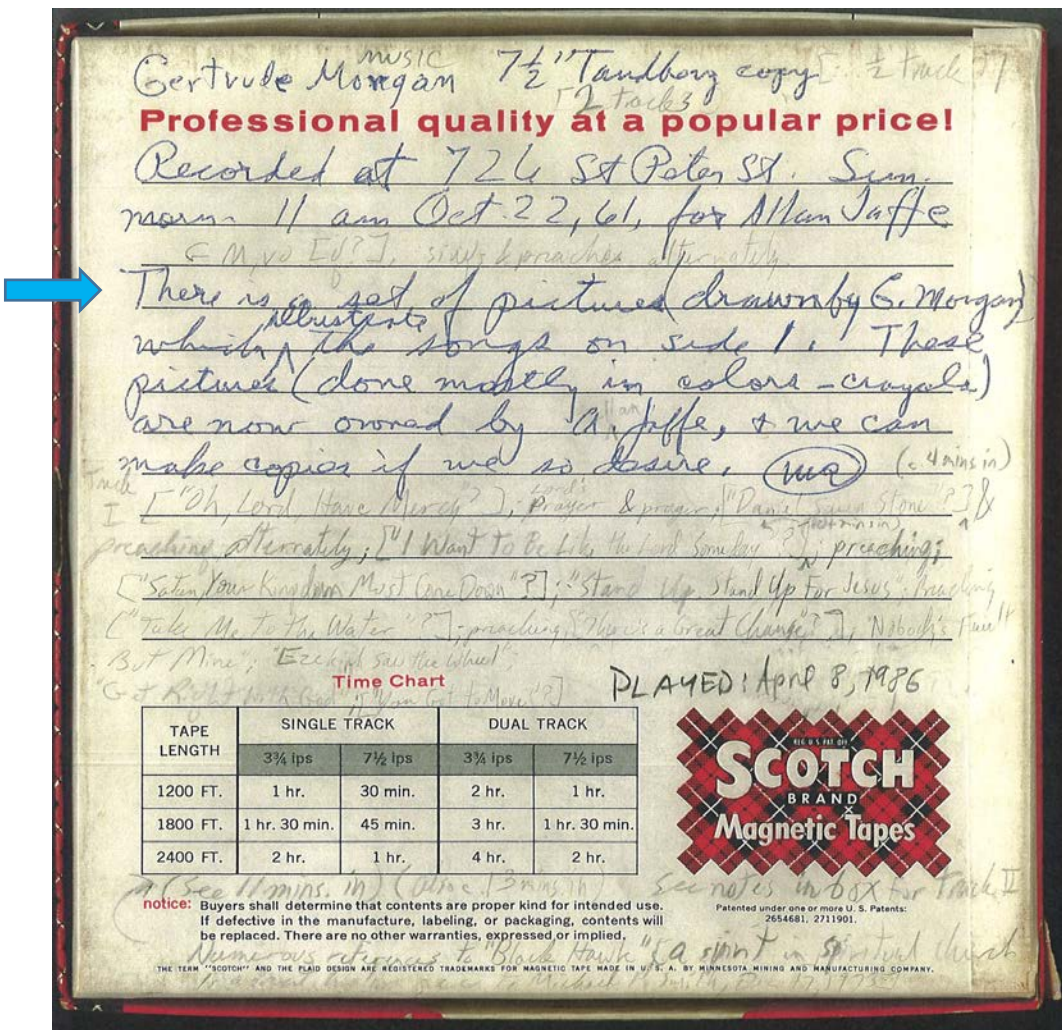 Gertrude Morgan music 7½" Tandberg copy [: ½ track ?]
[2 tracks
Professional quality at a popular price!
Recorded at 726 St Peter St. Sun.
morn. 11 am Oct. 22, 61, for Allan Jaffe
sings & preaches alternately.
There is a set of pictures (drawn by G. Morgan)
which illustrate the songs on side 1. These
pictures (done mostly in colors - crayola)
are now owned by Allan Jaffe, & we can
make copies if we so desire. (c. 4 mins in)
Track
I ["Oh, Lord Have Mercy"?]; Lord's Prayer & prayer; Stone"?] &
preaching alternately; ["I Want To Be Like the Lord Someday"?]; preaching;
["Satan, Your Kingdom Must Come Down"?]; "Stand Up, Stand Up For Jesus"; Preaching
["Take Me To the Water"?]; preaching; ["There's a Great Change"?]; "Nobody's Fault
But Mine"; "Ezekiel Saw the Wheel";
"Get Right With God"; ["You Got to Move"?]
PLAYED: April 8, 1986
Time Chart
TAPE LENGTH SINGLE TRACK DUAL TRACK
3¾ ips 7½ ips 3¾ ips 7½ ips
1200 FT. 1 hr. 30 min. 2 hr. 1 hr.
1800 FT. 1 hr. 30 min. 45 min. 3 hr. 1 hr. 30 min.
2400 FT. 2 hr. 1 hr. 4 hr. 2 hr.
REG U S PAT OFF
SCOTCH
BRAND
Magnetic Tapes
(See 11 mins. in) (also c. 13 mins. in) see notes in box for Track II
notice: Buyers shall determine that contents are proper kind for intended use.
If defective in the manufacture, labeling, or packaging, contents will
be replaced. There are no other warranties, expressed or implied.
Patented under one or more U. S. Patents:
2654681, 2711901.
Numerous references to "Black Hawk" [a spirit in spiritual church
THE TERM "SCOTCH" AND THE PLAID DESIGN ARE REGISTERED TRADEMARKS FOR MAGNETIC TAPE MADE IN U. S. A. BY MINNESOTA MINING AND MANUFACTURING COMPANY.